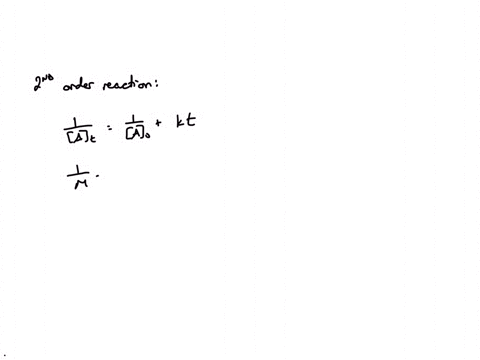 2ND order reaction:
1/[A]t = 1/[A]0 + kt
1/M .